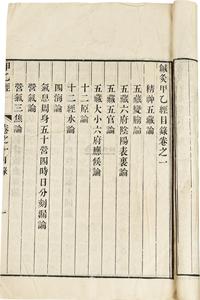 鍼灸甲乙經目錄卷之一
精神五藏論
五藏變腧論
五藏六府陰陽表裏論
五藏五官論
五藏大小六府應候論
十二原論
十二經水論
四海論
氣息周身五十營四時日分刻漏論
營氣論
營氣三焦論
甲乙經
卷之一目錄
一